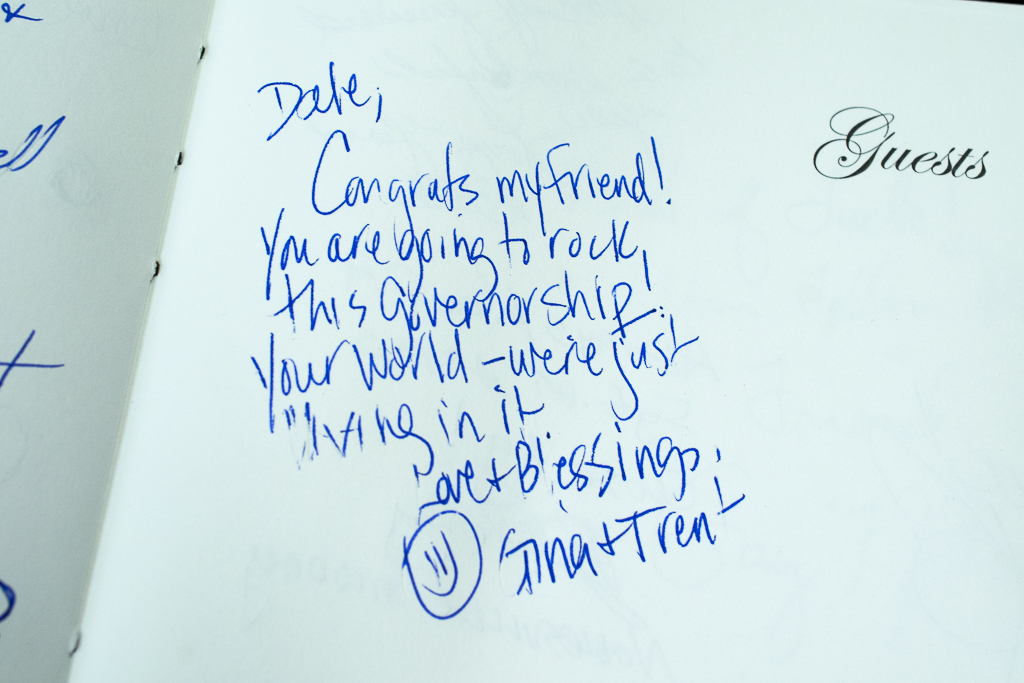 Dale,
Guests
Congrats my friend!
You are going to rock
this Governorship!
Your World - we're just
living in it
Love + Blessings,
Gina + Trent